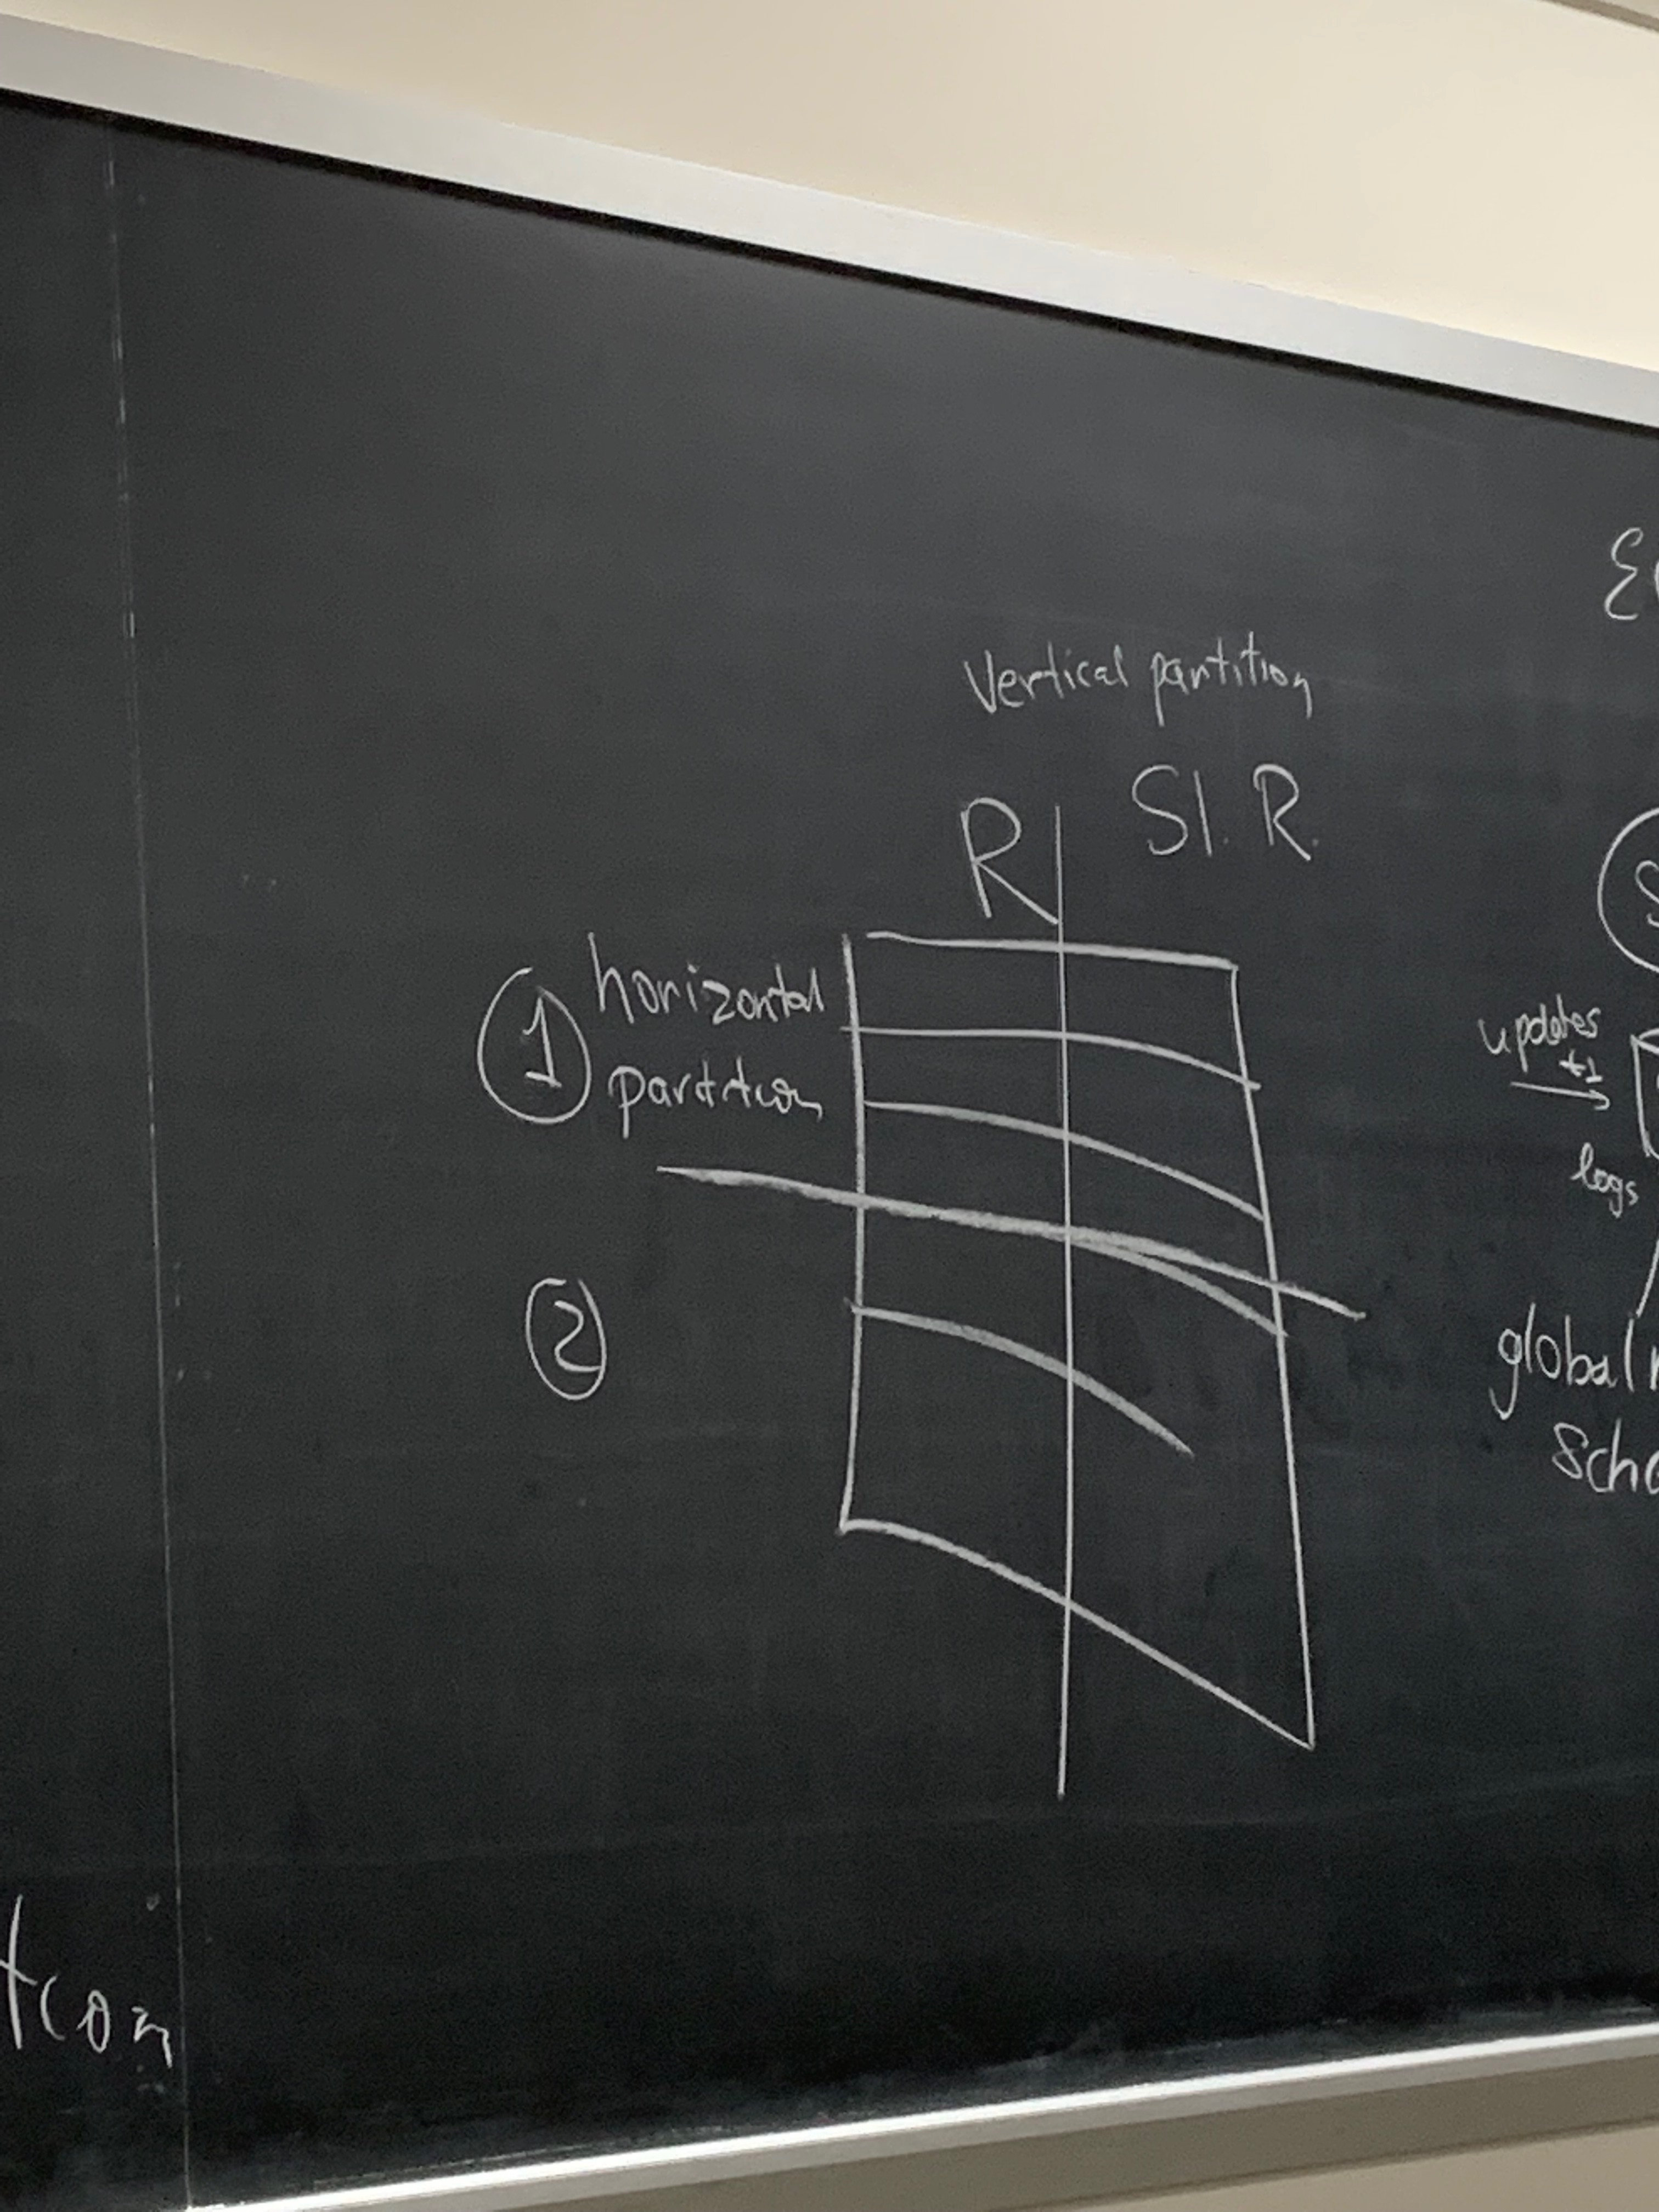 Vertical partition
R S1. R.
① horizontal
partition
②
updates
t1
logs
global